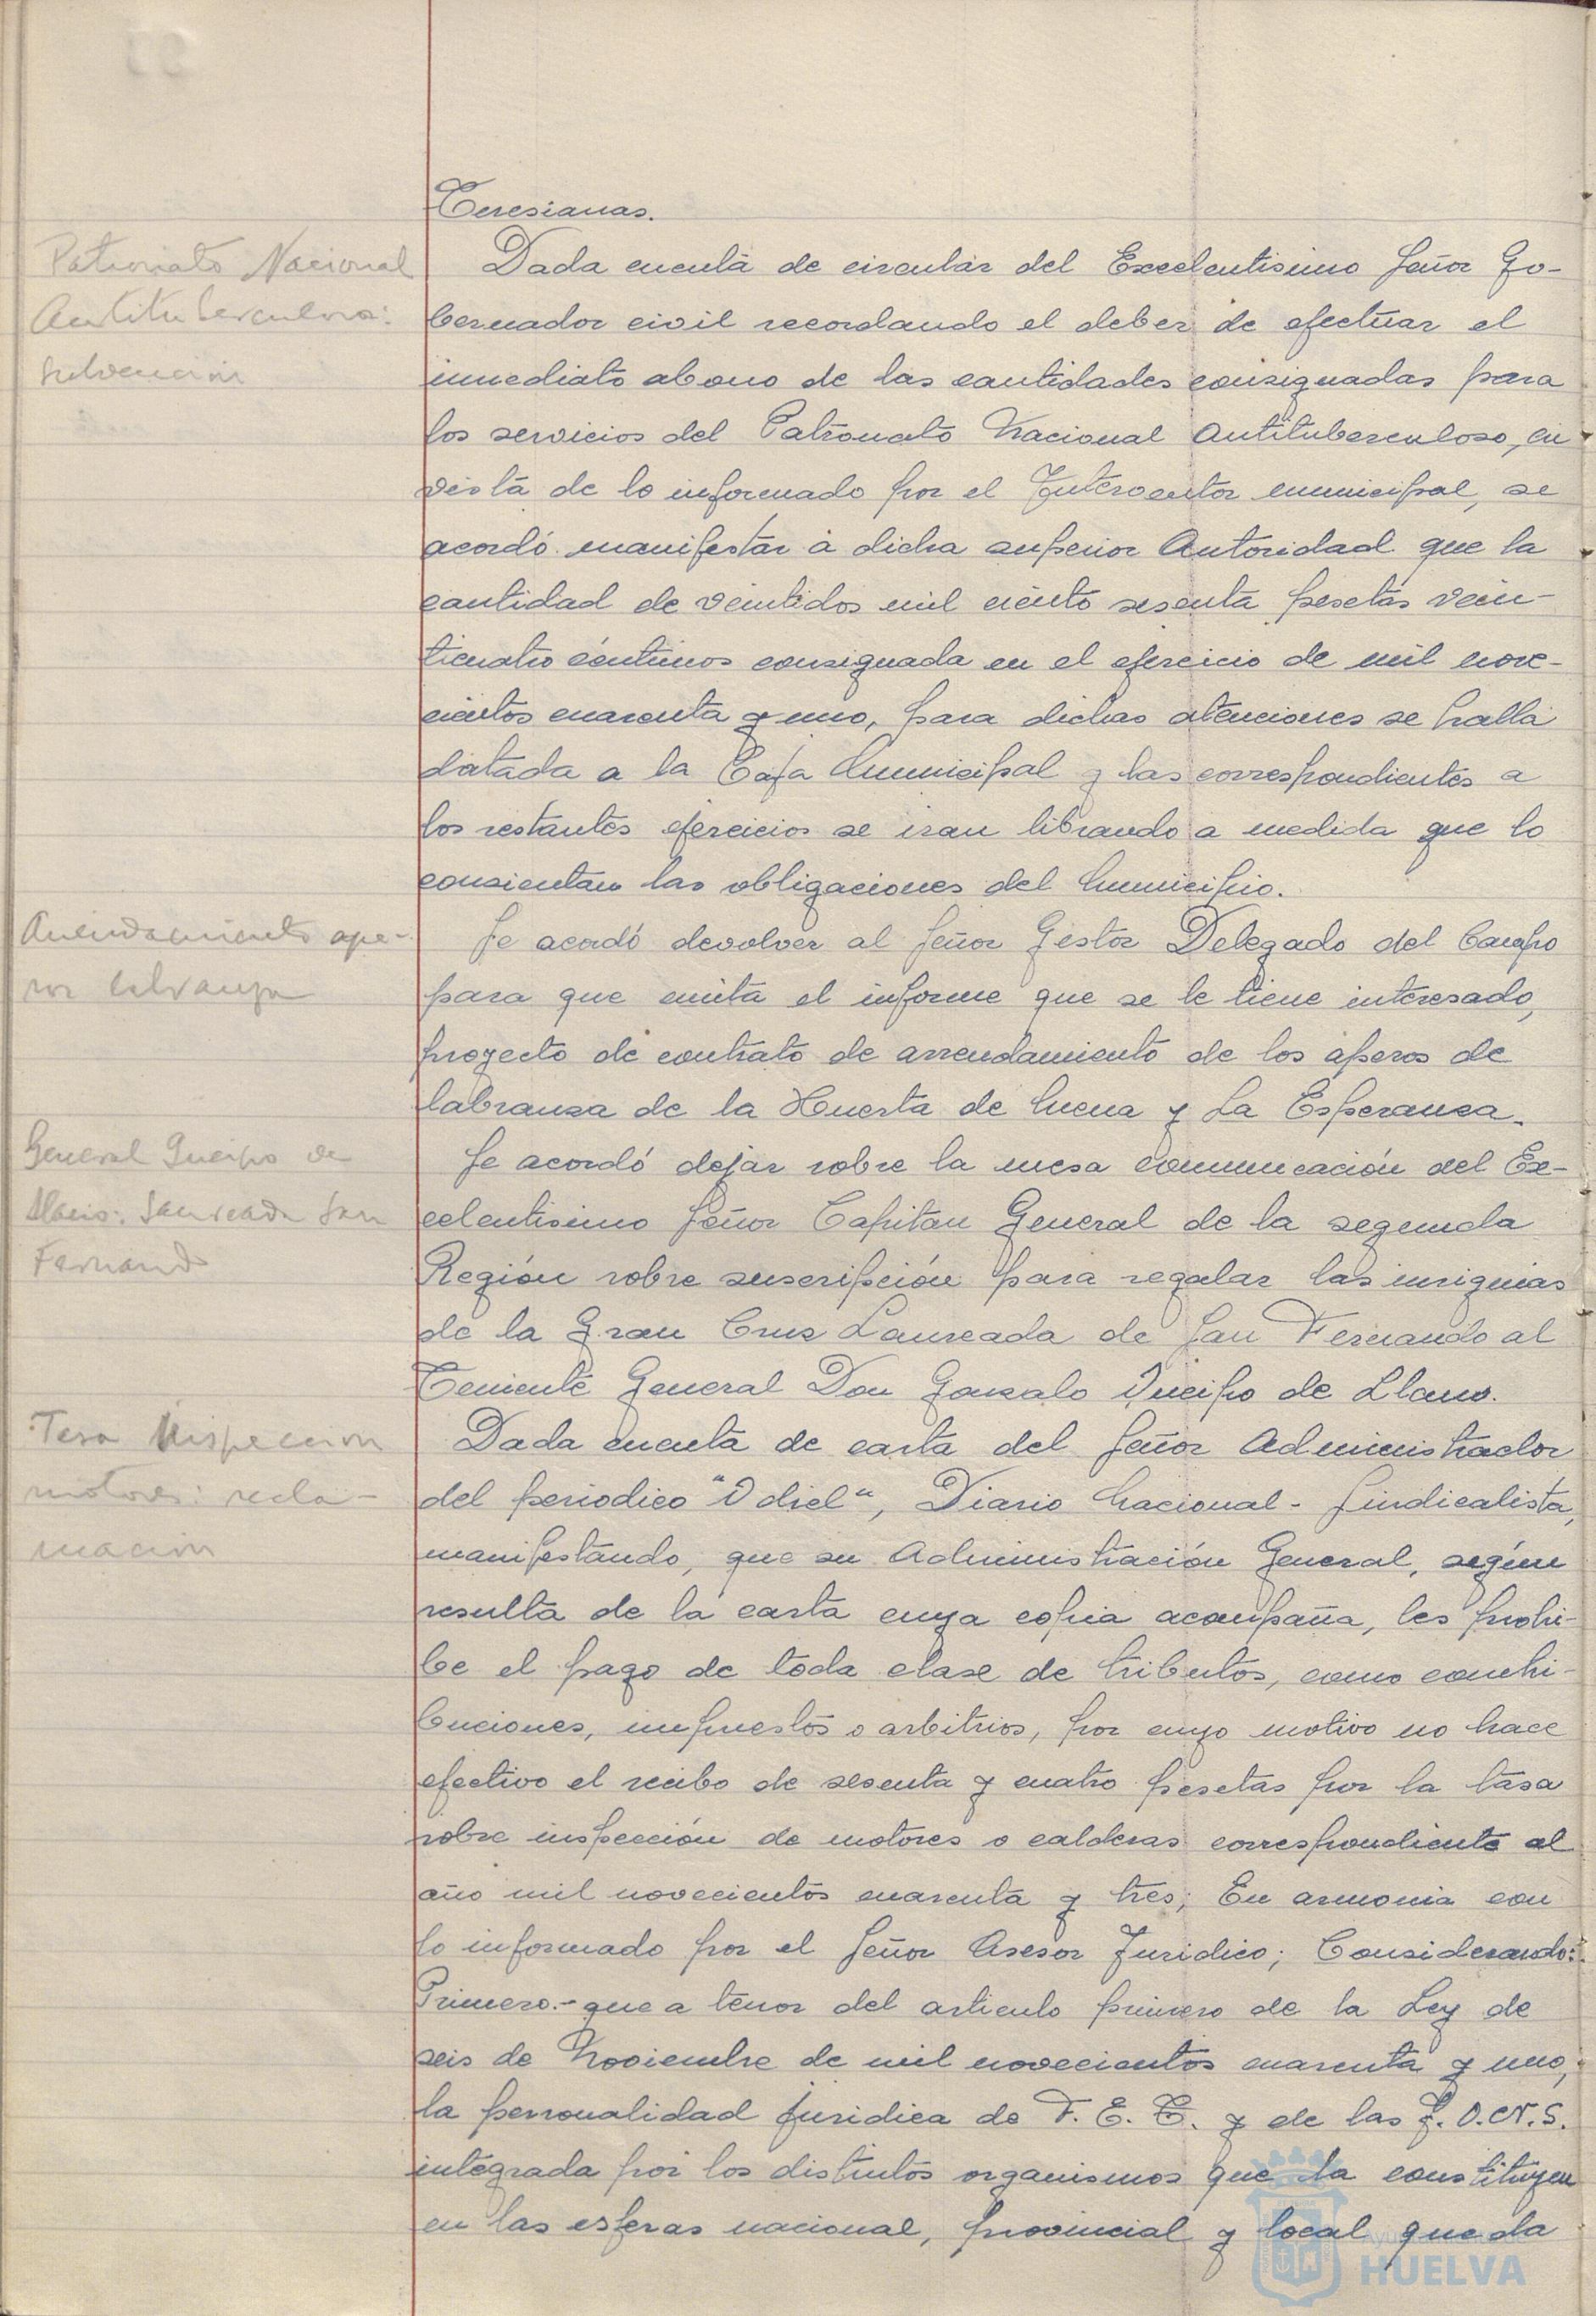 Teresianas.
Patronato Nacional
Antituberculoso:
subvención
Dada cuenta de circular del Excelentisimo Señor Go-
bernador civil recordando el deber de efectuar el
inmediato abono de las cantidades consignadas para
los servicios del Patronato Nacional Antituberculoso, en
vista de lo informado por el Interventor municipal, se
acordó manifestar a dicha superior Autoridad que la
cantidad de veintidos mil ciento sesenta pesetas vein-
ticuatro céntimos consignada en el ejercicio de mil nove-
cientos cuarenta y uno, para dichas atenciones se halla
datada a la Caja Municipal y las correspondientes a
los restantes ejercicios se iran librando a medida que lo
consientan las obligaciones del Municipio.
Arrendamiento ape-
ros labranza
Se acordó devolver al Señor Gestor Delegado del Campo
para que emita el informe que se le tiene interesado,
proyecto de contrato de arrendamiento de los aperos de
labranza de la Huerta de Mena y La Esperanza.
General Queipo de
Llano: Laureada San
Fernando
Se acordó dejar sobre la mesa comunicación del Ex-
celentisimo Señor Capitan General de la segunda
Región sobre suscripción para regalar las insignias
de la Gran Cruz Laureada de San Fernando al
Teniente General Don Gonzalo Queipo de Llano.
Tasa inspeccion
motores: recla-
macion
Dada cuenta de carta del Señor Administrador
del periodico "Odiel", Diario Nacional-Sindicalista,
manifestando, que su Administración General, según
resulta de la carta cuya copia acompaña, les prohi-
be el pago de toda clase de tributos, como contri-
buciones, impuestos o arbitrios, por cuyo motivo no hace
efectivo el recibo de sesenta y cuatro pesetas por la tasa
sobre inspección de motores o calderas correspondiente al
año mil novecientos cuarenta y tres; En armonia con
lo informado por el Señor Asesor Juridico; Considerando:
Primero.- que a tenor del articulo primero de la Ley de
seis de Noviembre de mil novecientos cuarenta y uno,
la personalidad juridica de F. E. T. y de las J. O. N. S.
integrada por los distintos organismos que la constituyen
en las esferas nacional, provincial y local queda
Ayuntamiento de
HUELVA